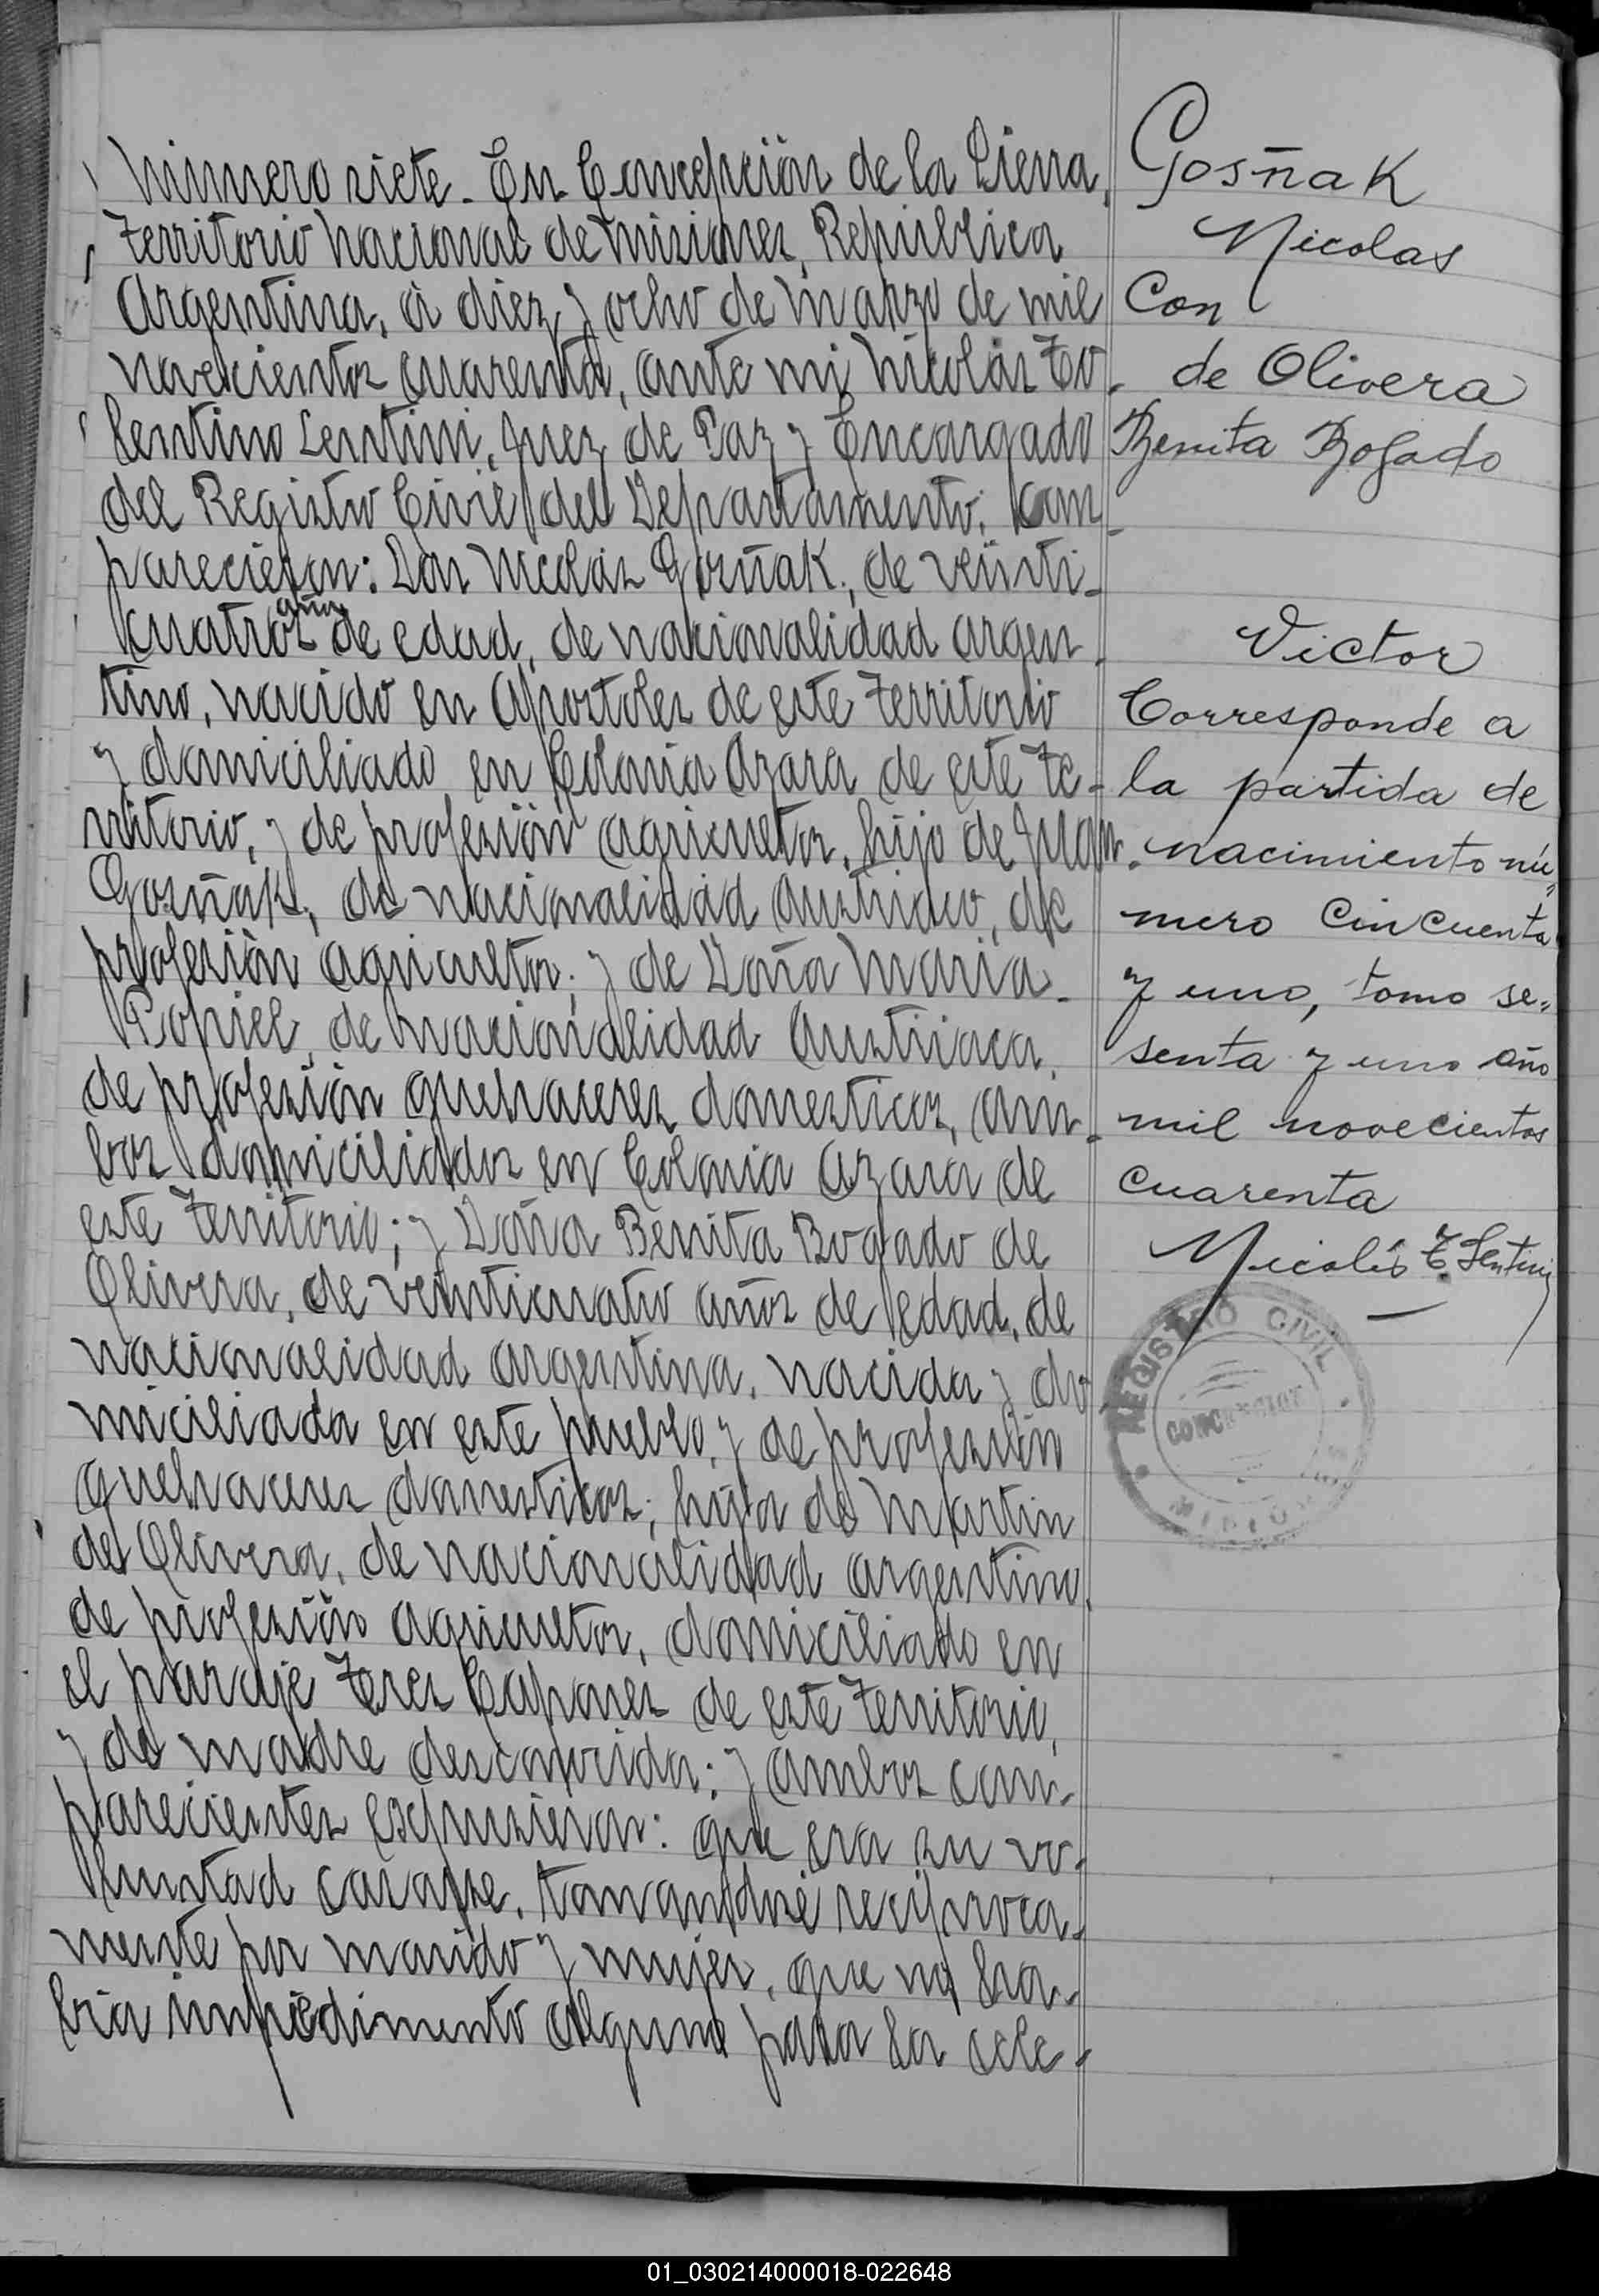 Número siete. En Concepción de la Sierra,
Territorio Nacional de Misiones, República
Argentina, á diez y ocho de Marzo de mil
novecientos cuarenta, ante mi Nicolás To-
lentino Lentini, Juez de Paz y Encargado
del Registro Civil del Departamento, com-
parecieron: Don Nicolás Gosñak, de veinti-
cuatro años de edad, de nacionalidad argen-
tino, nacido en Apostoles de este Territorio
y domiciliado en Colonia Azara de este Te-
rritorio, y de profesión agricultor, hijo de Juan
Gosñak, de nacionalidad Austriaco, de
profesión agricultor; y de Doña Maria
Popiel, de nacionalidad Austriaca,
de profesión quehaceres domesticos, am-
bos domiciliados en Colonia Azara de
este Territorio; y Doña Benita Bogado de
Olivera, de veinticuatro años de edad, de
nacionalidad argentina, nacida y do
miciliada en este pueblo, y de profesión
quehaceres domesticos; hija de Martin
de Olivera, de nacionalidad argentino,
de profesión agricultor, domiciliado en
el paraje Tres Capones de este Territorio,
y de madre desconocida; y ambos com-
parecientes expusieron: que era su vo-
luntad casarse, tomandose reciproca-
mente por marido y mujer, que no ha-
bia impedimento alguno para la cele-
Gosñak
Nicolas
Con
de Olivera
Benita Bogado
Victor
Corresponde a
la partida de
nacimiento nú-
mero Cincuenta
y uno, tomo se-
senta y uno año
mil novecientos
cuarenta
Nicolás T. Lentini
REGISTRO CIVIL
CONCEPCION
01_030214000018-022648